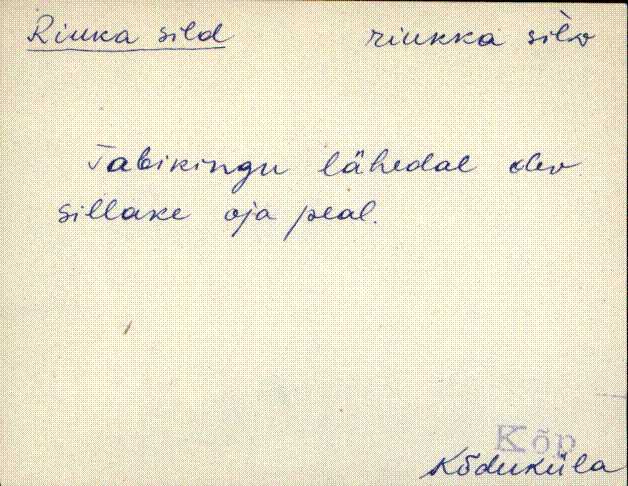 Riuka sild riukka silˋv
Tabikingu lähedal olev
sillake oja peal.
Kõp
Kõduküla